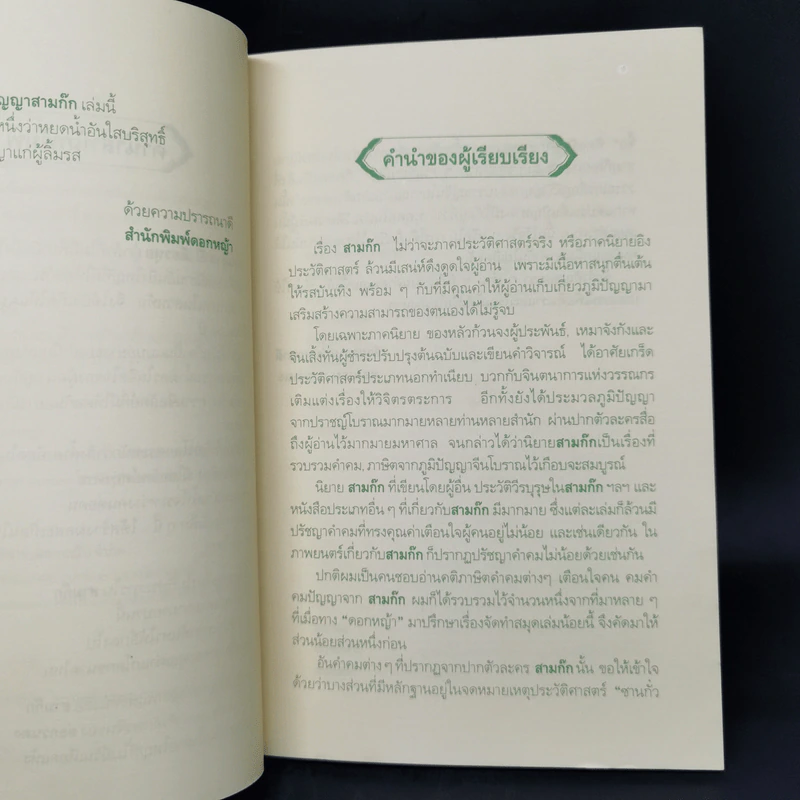 ญญาสามก๊ก เล่มนี้
หนึ่งว่าหยดน้ำอันใสบริสุทธิ์
ญาแก่ผู้ลิ้มรส
ด้วยความปรารถนาดี
สำนักพิมพ์ดอกหญ้า
คำนำของผู้เรียบเรียง
เรื่อง สามก๊ก ไม่ว่าจะภาคประวัติศาสตร์จริง หรือภาคนิยายอิง
ประวัติศาสตร์ ล้วนมีเสน่ห์ดึงดูดใจผู้อ่าน เพราะมีเนื้อหาสนุกตื่นเต้น
ให้รสบันเทิง พร้อม ๆ กับที่มีคุณค่าให้ผู้อ่านเก็บเกี่ยวภูมิปัญญามา
เสริมสร้างความสามารถของตนเองได้ไม่รู้จบ
โดยเฉพาะภาคนิยาย ของหลัวก้วนจงผู้ประพันธ์, เหมาจังกังและ
จินเสิ้งทั่นผู้ชำระปรับปรุงต้นฉบับและเขียนคำวิจารณ์ ได้อาศัยเกร็ด
ประวัติศาสตร์ประเภทนอกทำเนียบ บวกกับจินตนาการแห่งวรรณกร
เติมแต่งเรื่องให้วิจิตรตระการ อีกทั้งยังได้ประมวลภูมิปัญญา
จากปราชญ์โบราณมากมายหลายท่านหลายสำนัก ผ่านปากตัวละครสื่อ
ถึงผู้อ่านไว้มากมายมหาศาล จนกล่าวได้ว่านิยายสามก๊กเป็นเรื่องที่
รวบรวมคำคม, ภาษิตจากภูมิปัญญาจีนโบราณไว้เกือบจะสมบูรณ์
นิยาย สามก๊ก ที่เขียนโดยผู้อื่น ประวัติวีรบุรุษในสามก๊ก ฯลฯ และ
หนังสือประเภทอื่น ๆ ที่เกี่ยวกับสามก๊ก มีมากมาย ซึ่งแต่ละเล่มก็ล้วนมี
ปรัชญาคำคมที่ทรงคุณค่าเตือนใจผู้คนอยู่ไม่น้อย และเช่นเดียวกัน ใน
ภาพยนตร์เกี่ยวกับสามก๊ก ก็ปรากฏปรัชญาคำคมไม่น้อยด้วยเช่นกัน
ปกติผมเป็นคนชอบอ่านคติภาษิตคำคมต่างๆ เตือนใจคน คมคำ
คมปัญญาจาก สามก๊ก ผมก็ได้รวบรวมไว้จำนวนหนึ่งจากที่มาหลาย ๆ
ที่เมื่อทาง “ดอกหญ้า” มาปรึกษาเรื่องจัดทำสมุดเล่มน้อยนี้ จึงคัดมาให้
ส่วนน้อยส่วนหนึ่งก่อน
อันคำคมต่าง ๆ ที่ปรากฏจากปากตัวละคร สามก๊กนั้น ขอให้เข้าใจ
ด้วยว่าบางส่วนที่มีหลักฐานอยู่ในจดหมายเหตุประวัติศาสตร์ “ซานกั๋ว